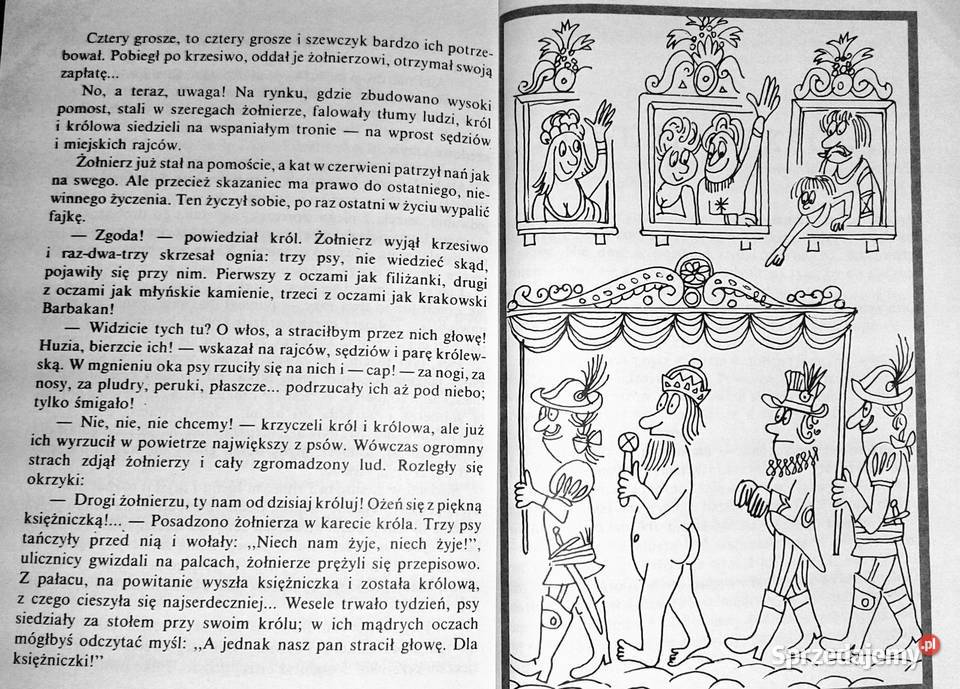 Cztery grosze, to cztery grosze i szewczyk bardzo ich potrze-
bował. Pobiegł po krzesiwo, oddał je żołnierzowi, otrzymał swoją
zapłatę...
No, a teraz, uwaga! Na rynku, gdzie zbudowano wysoki
pomost, stali w szeregach żołnierze, falowały tłumy ludzi, król
i królowa siedzieli na wspaniałym tronie — na wprost sędziów
i miejskich rajców.
Żołnierz już stał na pomoście, a kat w czerwieni patrzył nań jak
na swego. Ale przecież skazaniec ma prawo do ostatniego, nie-
winnego życzenia. Ten życzył sobie, po raz ostatni w życiu wypalić
fajkę.
— Zgoda! — powiedział król. Żołnierz wyjął krzesiwo
i raz-dwa-trzy skrzesał ognia: trzy psy, nie wiedzieć skąd,
pojawiły się przy nim. Pierwszy z oczami jak filiżanki, drugi
z oczami jak młyńskie kamienie, trzeci z oczami jak krakowski
Barbakan!
— Widzicie tych tu? O włos, a straciłbym przez nich głowę!
Huzia, bierzcie ich! — wskazał na rajców, sędziów i parę królew-
ską. W mgnieniu oka psy rzuciły się na nich i — cap! — za nogi, za
nosy, za pludry, peruki, płaszcze... podrzucały ich aż pod niebo;
tylko śmigało!
— Nie, nie, nie chcemy! — krzyczeli król i królowa, ale już
ich wyrzucił w powietrze największy z psów. Wówczas ogromny
strach zdjął żołnierzy i cały zgromadzony lud. Rozległy się
okrzyki:
— Drogi żołnierzu, ty nam od dzisiaj króluj! Ożeń się z piękną
księżniczką!... — Posadzono żołnierza w karecie króla. Trzy psy
tańczyły przed nią i wołały: „Niech nam żyje, niech żyje!”,
ulicznicy gwizdali na palcach, żołnierze prężyli się przepisowo.
Z pałacu, na powitanie wyszła księżniczka i została królową,
z czego cieszyła się najserdeczniej... Wesele trwało tydzień, psy
siedziały za stołem przy swoim królu; w ich mądrych oczach
mógłbyś odczytać myśl: „A jednak nasz pan stracił głowę. Dla
księżniczki!”
Sprzedajemy.pl